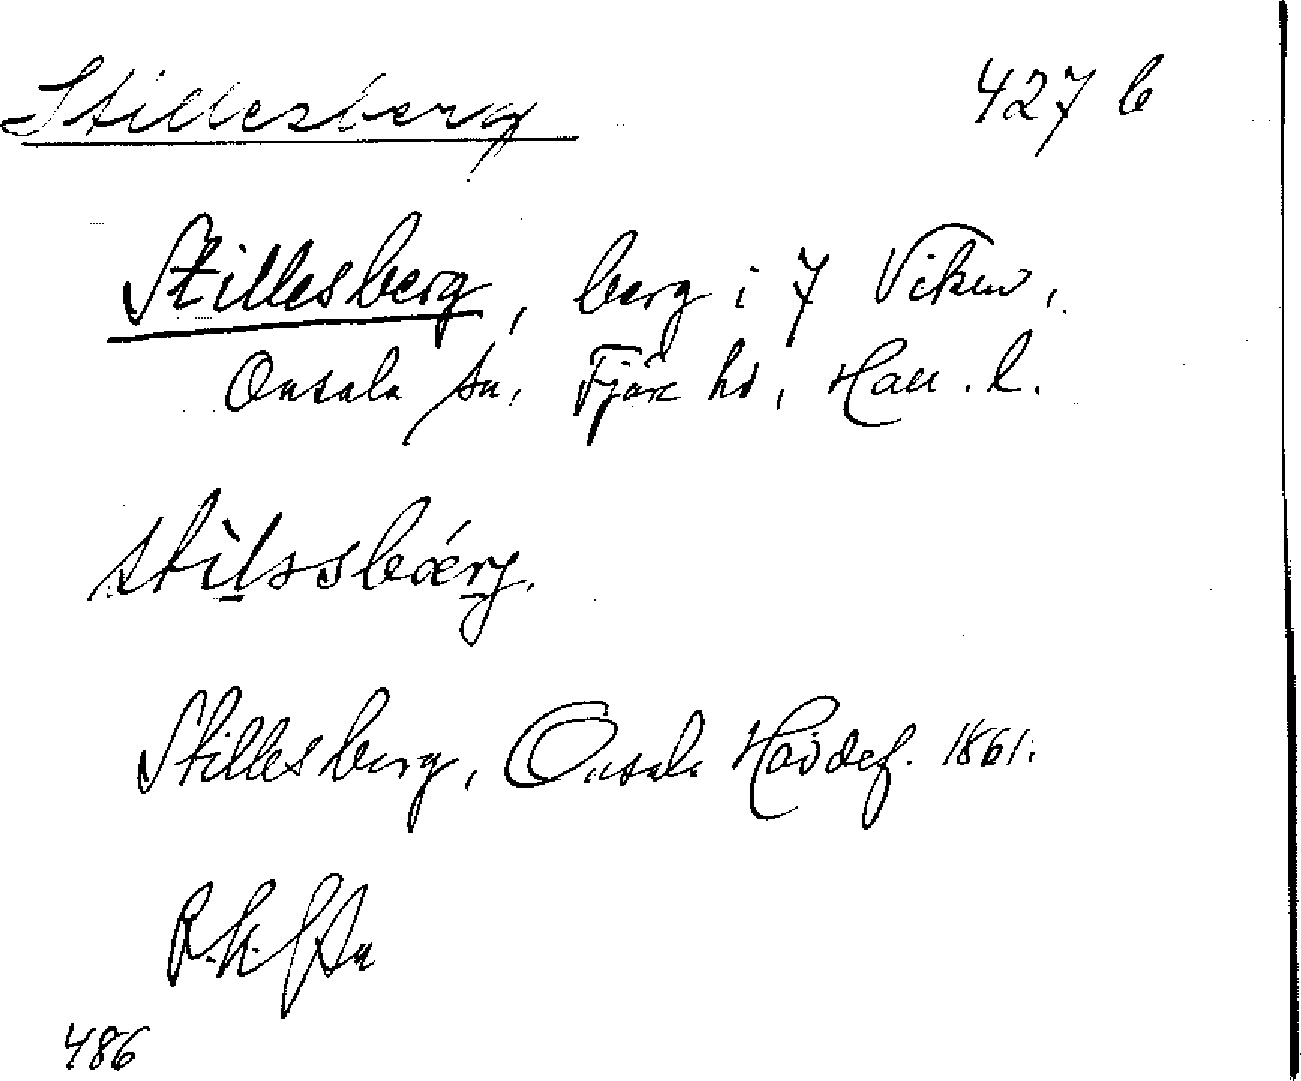 Stillesberg 427 b
Stillesberg, berg i 7 Viken,
Onsala sn, Fjäre hd, Hall. l.
Stillesberg, Onsala Havdef. 1861.
486